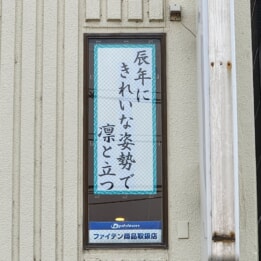 辰年に
きれいな姿勢で
凛と立つ
Phiten
ファイテン商品取扱店